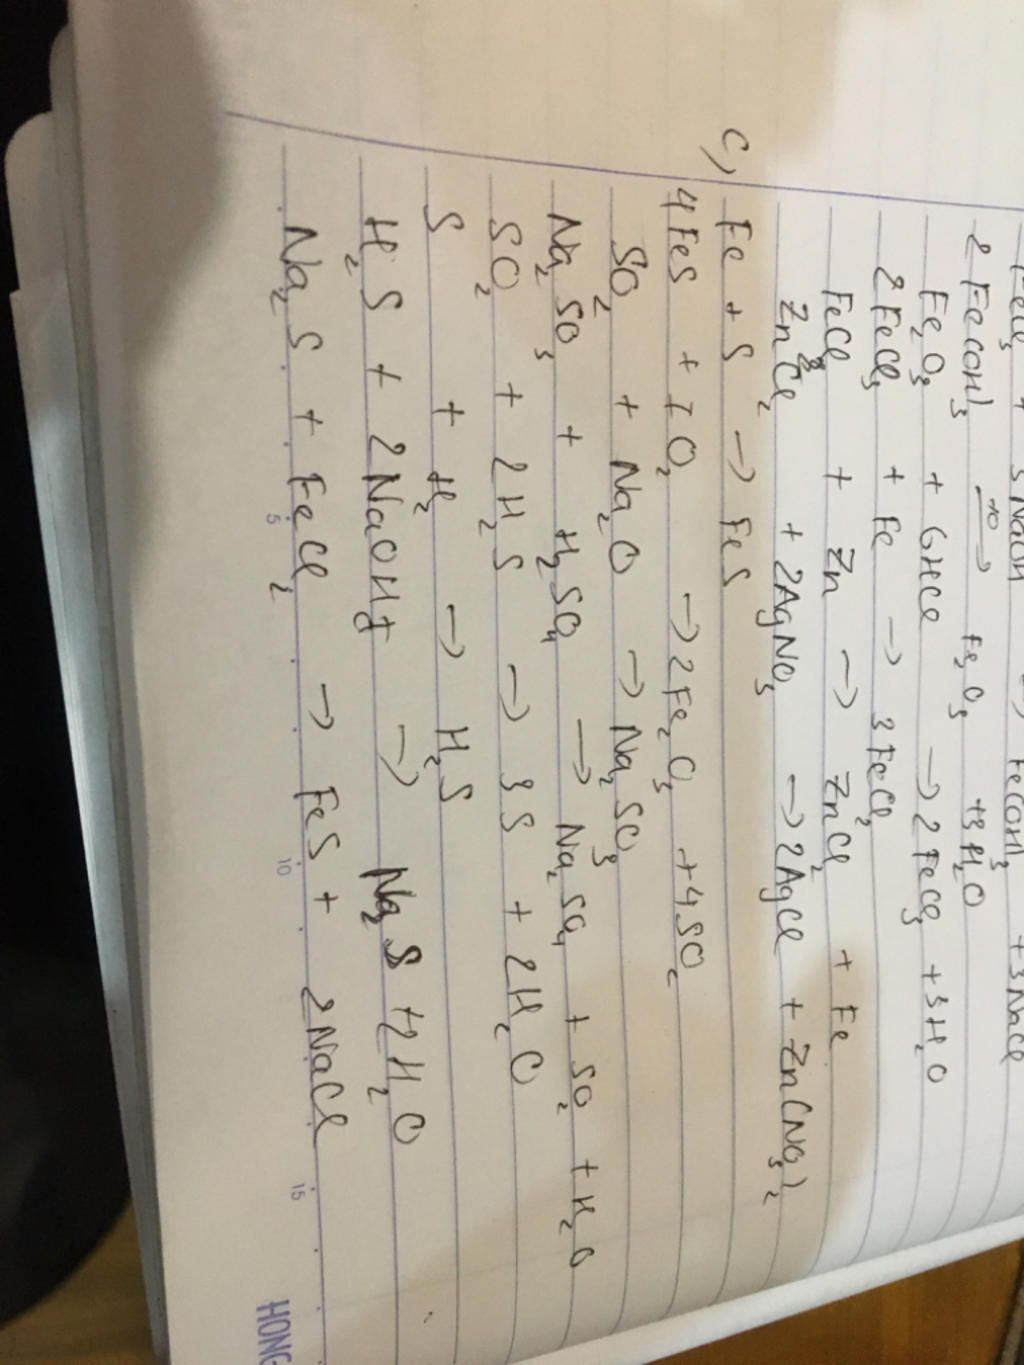 FeCl₃ + 3NaOH → Fe(OH)₃ + 3NaCl
2Fe(OH)₃ —t⁰→ Fe₂O₃ + 3H₂O
Fe₂O₃ + 6HCl → 2FeCl₃ + 3H₂O
2FeCl₃ + Fe → 3FeCl₂
FeCl₂ + Zn → ZnCl₂ + Fe
ZnCl₂ + 2AgNO₃ → 2AgCl + Zn(NO₃)₂
c) Fe + S → FeS
4FeS + 7O₂ → 2Fe₂O₃ + 4SO₂
SO₂ + Na₂O → Na₂SO₃
Na₂SO₃ + H₂SO₄ → Na₂SO₄ + SO₂ + H₂O
SO₂ + 2H₂S → 3S + 2H₂O
S + H₂ → H₂S
H₂S + 2NaOH + → Na₂S + 2H₂O
Na₂S + FeCl₂ → FeS + 2NaCl
5 10 15
HONG